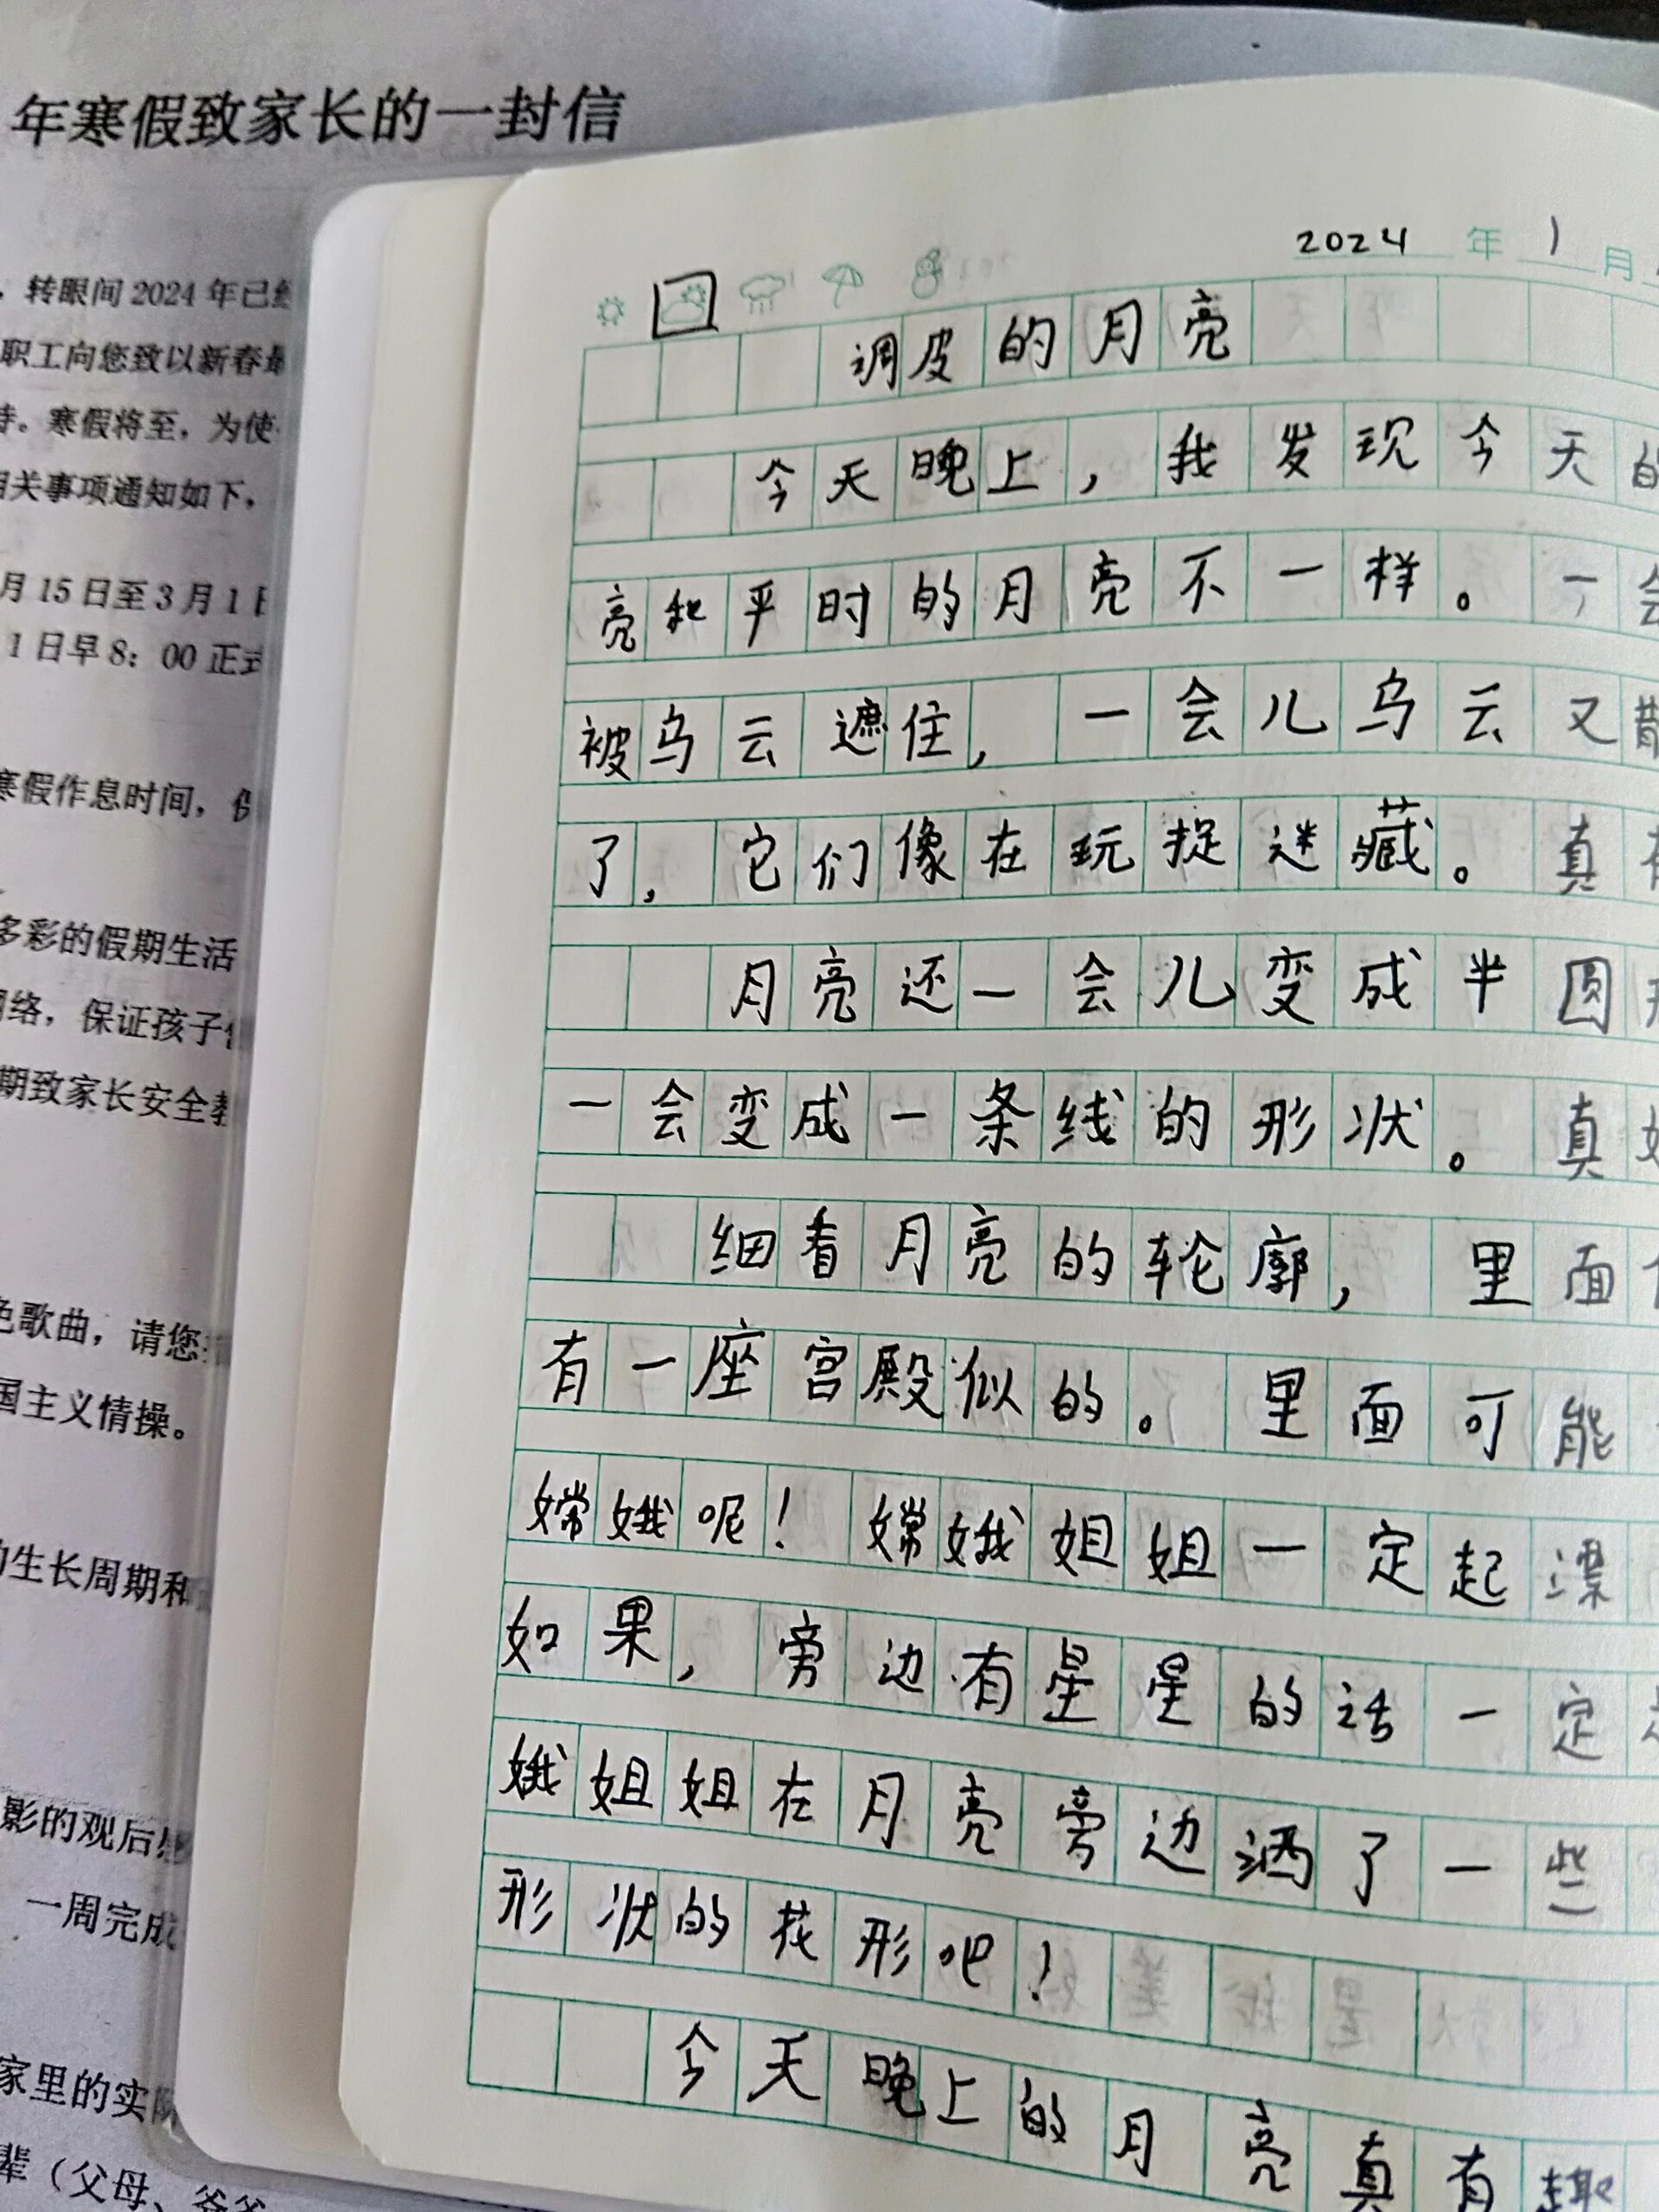 年寒假致家长的一封信
，转眼间2024年已
职工向您致以新春
。寒假将至，为使
相关事项通知如下，
月15日至3月1
1日早8：00正式
寒假作息时间，
多彩的假期生活
网络，保证孩子
期致家长安全
色歌曲，请您
国主义情操。
的生长周期和
影的观后
一周完成
家里的实际
辈（父母、爷爷
2024年1月
调皮的月亮
今天晚上，我发现今天的
亮和平时的月亮不一样。一会
被乌云遮住，一会儿乌云又散
了，它们像在玩捉迷藏。真有
月亮还一会儿变成半圆形
一会变成一条线的形状。真好
细看月亮的轮廓，里面
有一座宫殿似的。里面可能
嫦娥呢！嫦娥姐姐一定起漂
如果，旁边有星星的话一定是
娥姐姐在月亮旁边洒了一些
形状的花形吧！
今天晚上的月亮真有趣